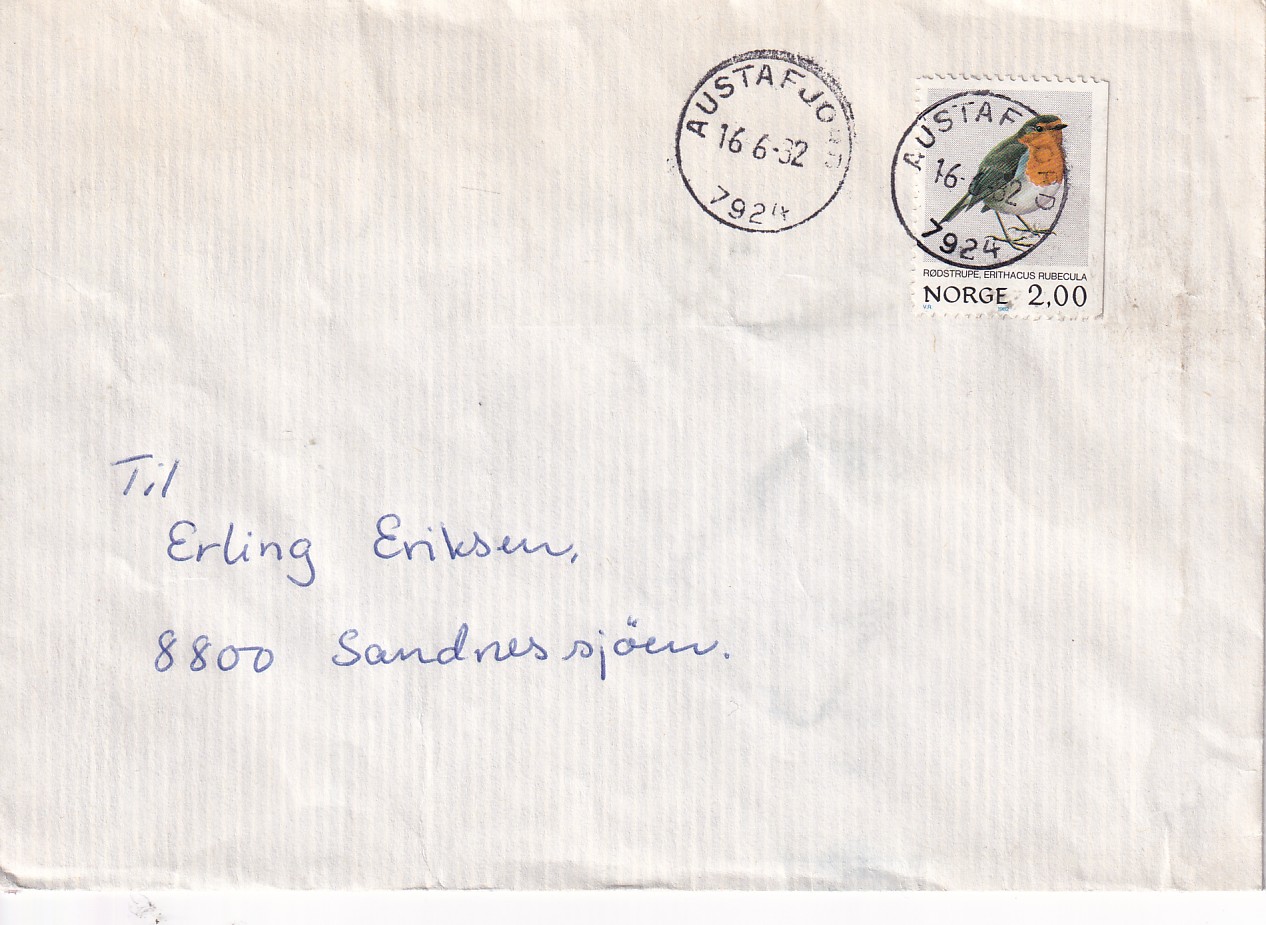 AUSTAFJORD
16-6-82
7924
AUSTAFJORD
16- -82
7924
RØDSTRUPE, ERITHACUS RUBECULA
NORGE 2,00
V.R. 1982
Til
Erling Eriksen,
8800 Sandnessjöen.